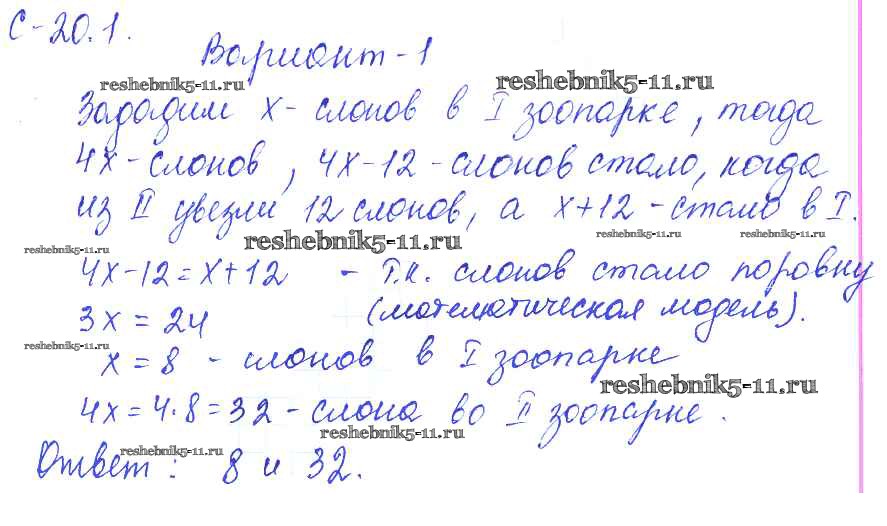 С-20.1.
Вариант-1
reshebnik5-11.ru reshebnik5-11.ru
Зададим x - слонов в I зоопарке, тогда
4x - слонов, 4x-12 - слонов стало, когда
из II увезли 12 слонов, а x+12 - стало в I.
reshebnik5-11.ru reshebnik5-11.ru reshebnik5-11.ru reshebnik5-11.ru
4x-12=x+12 - т.к. слонов стало поровну
3x = 24 (математическая модель).
reshebnik5-11.ru
x = 8 - слонов в I зоопарке
reshebnik5-11.ru
4x = 4·8 = 32 - слона во II зоопарке.
reshebnik5-11.ru
reshebnik5-11.ru
Ответ: 8 и 32.